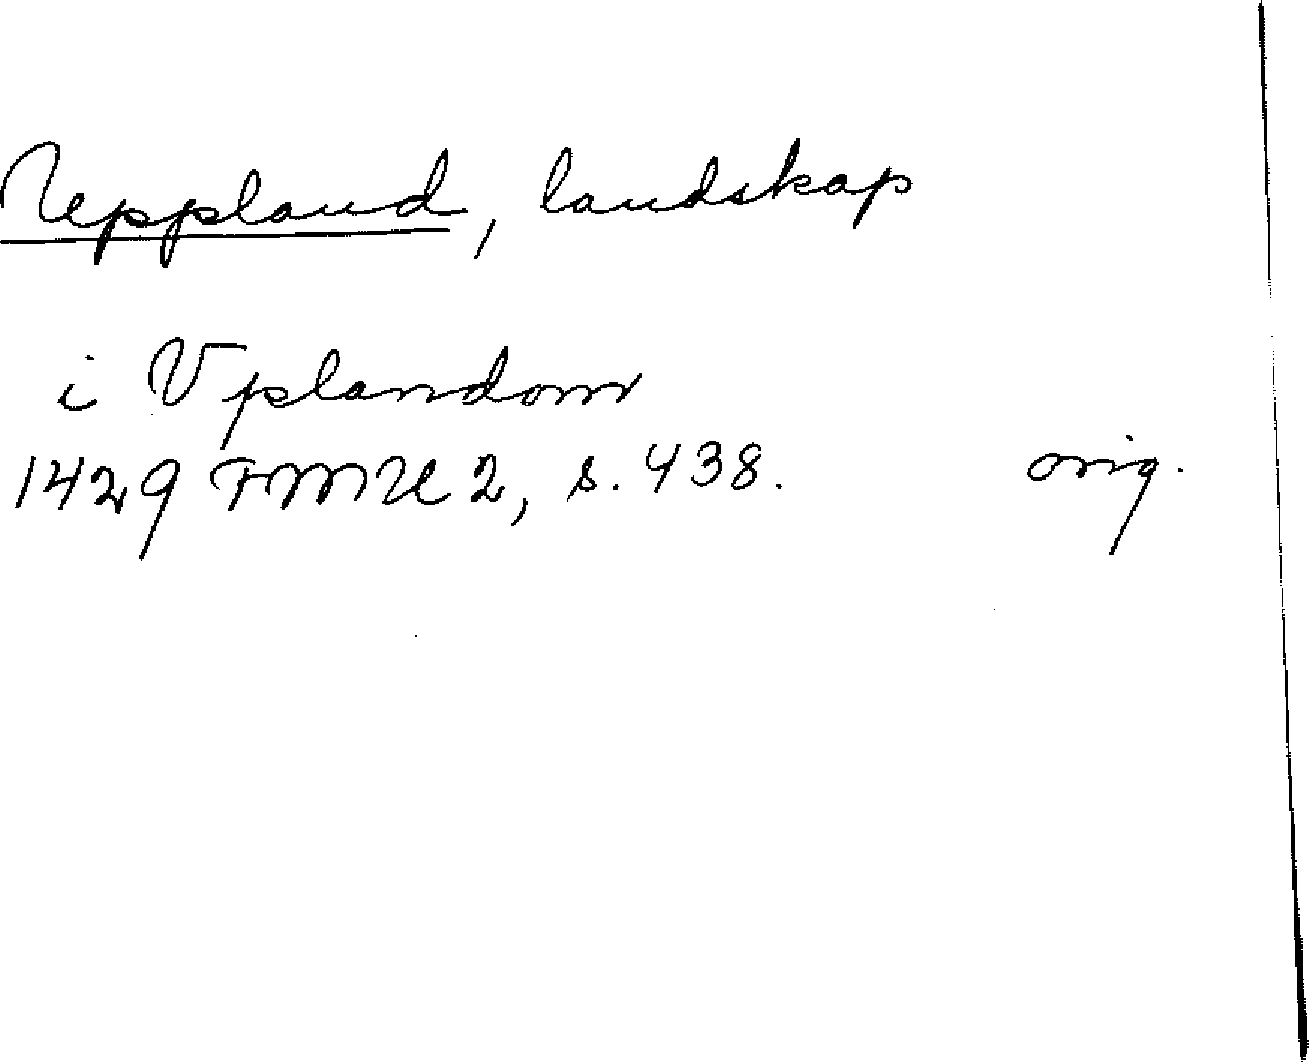 Uppland, landskap
i Vplandom
1429 FMU 2, s. 438. orig.